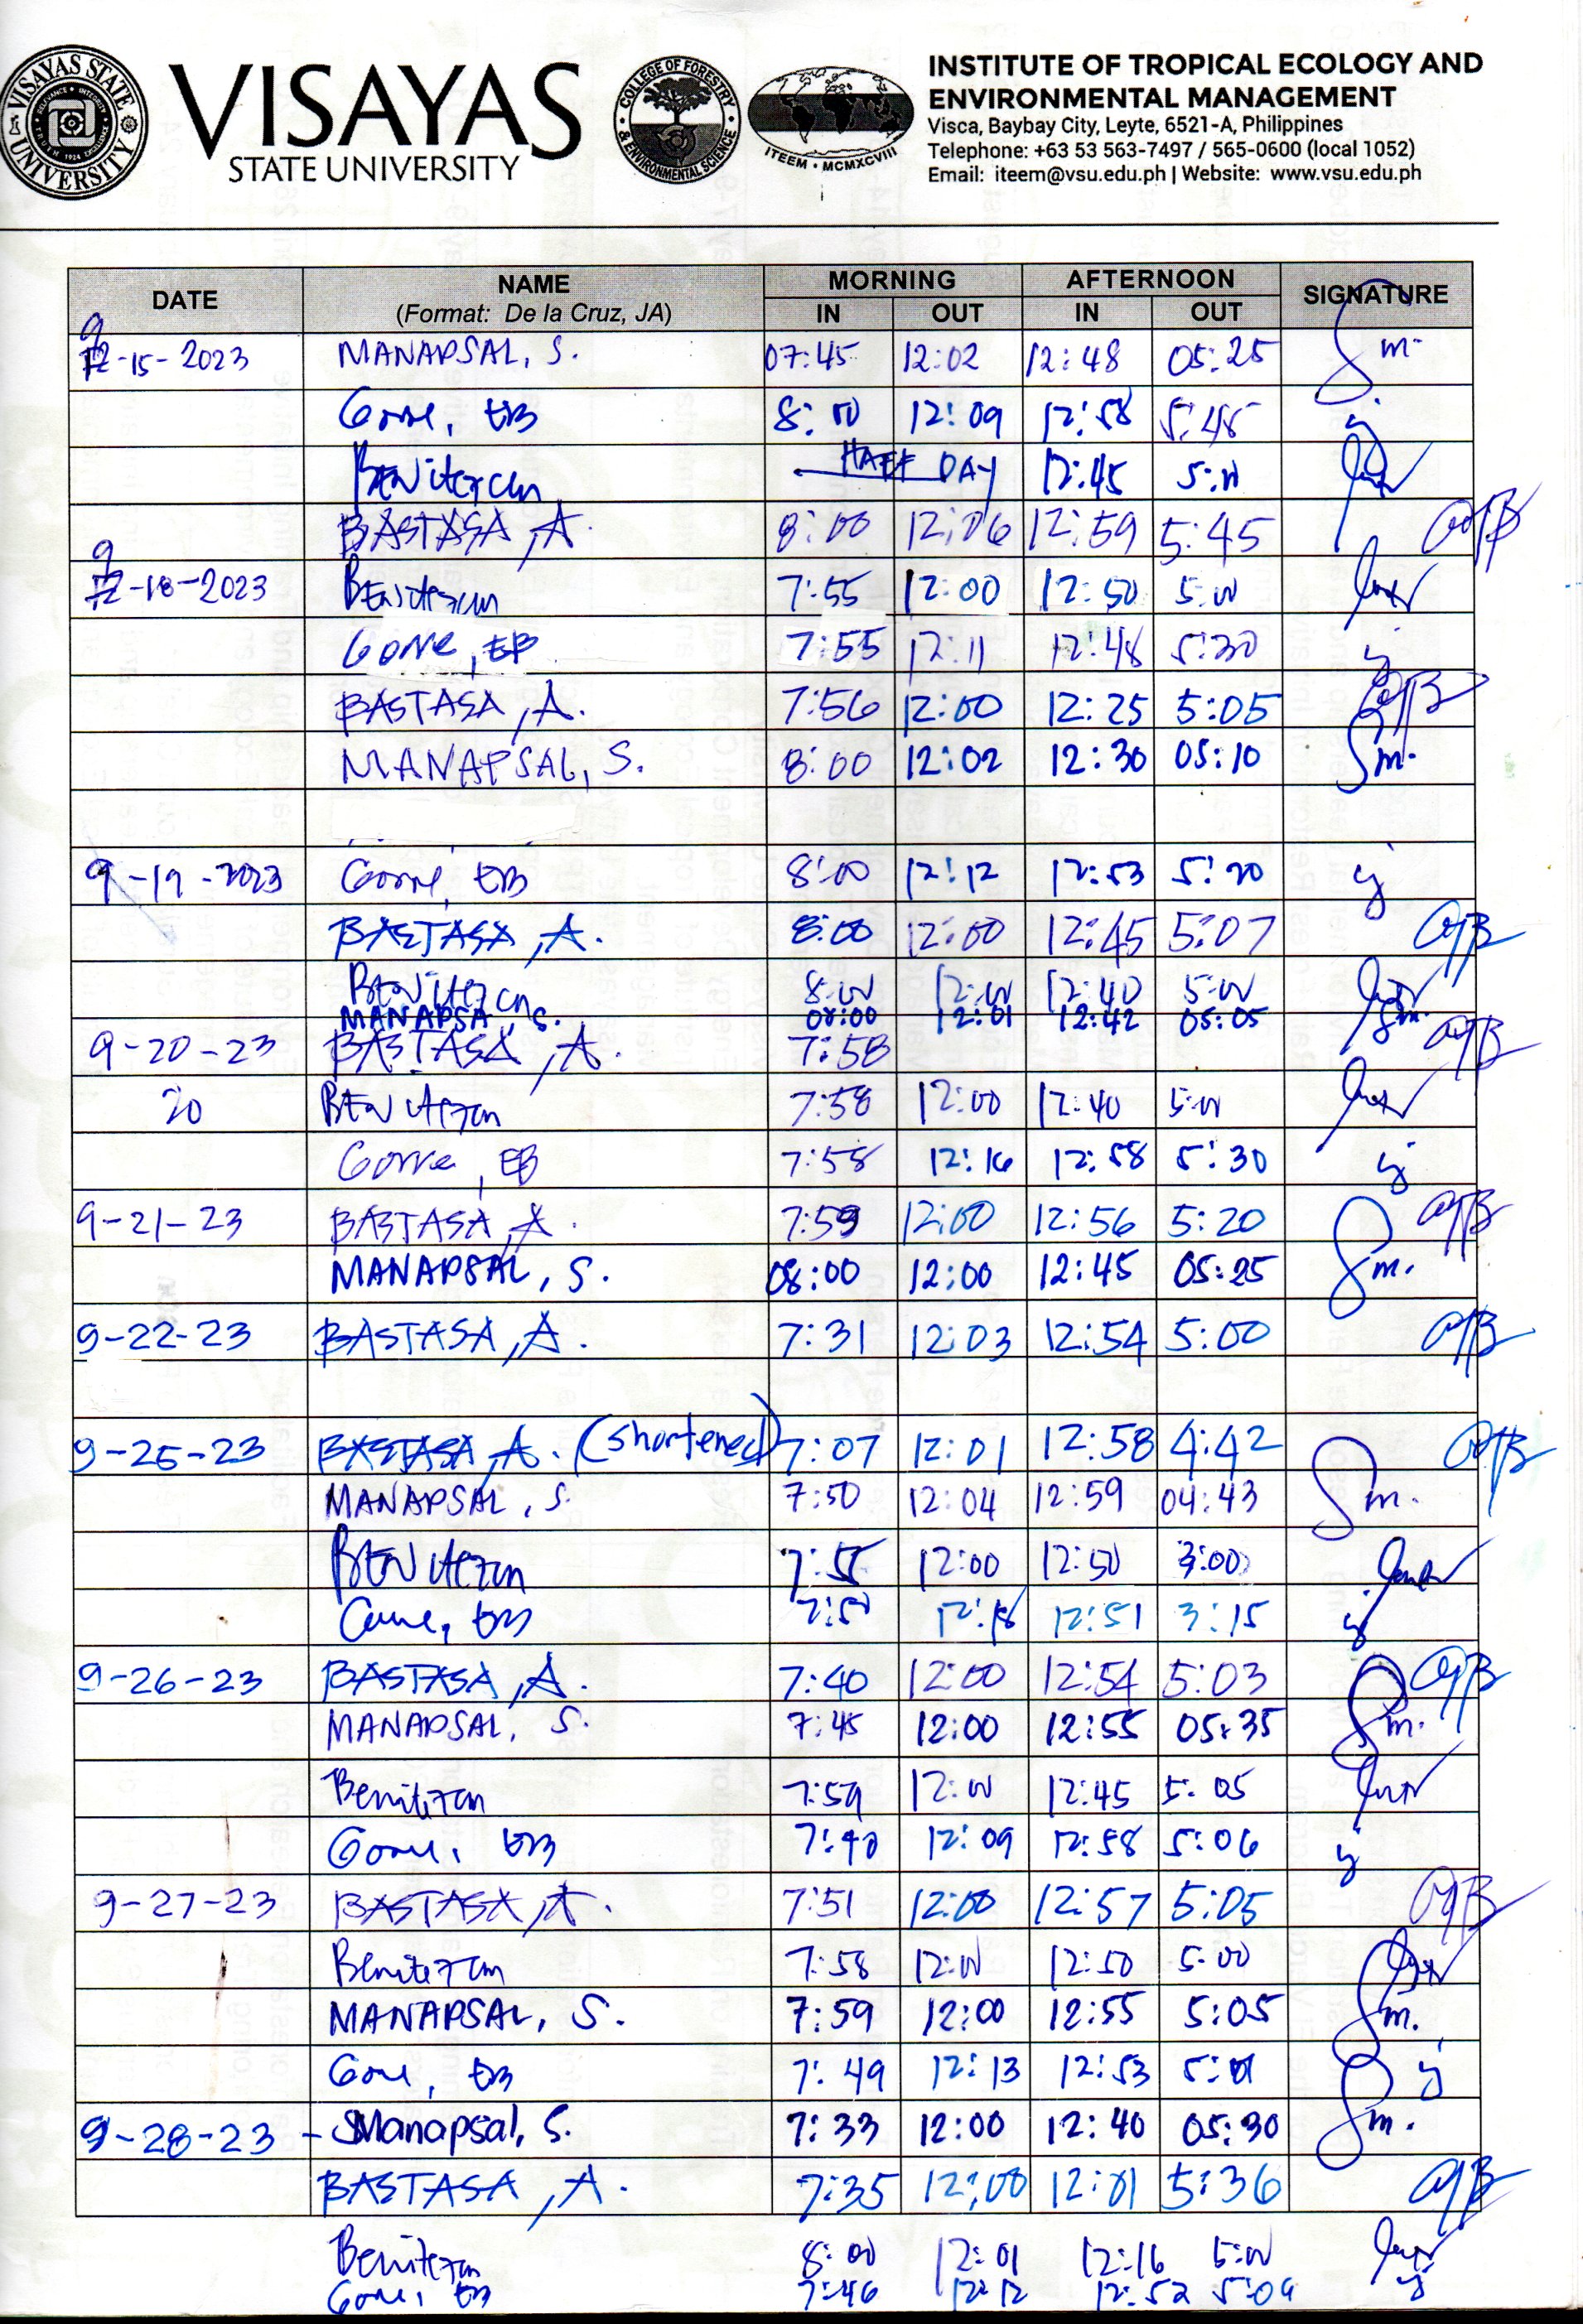 VISAYAS STATE UNIVERSITY
VISAYAS
STATE UNIVERSITY
COLLEGE OF FORESTRY & ENVIRONMENTAL SCIENCE
ITEEM • MCMXCVIII
INSTITUTE OF TROPICAL ECOLOGY AND
ENVIRONMENTAL MANAGEMENT
Visca, Baybay City, Leyte, 6521-A, Philippines
Telephone: +63 53 563-7497 / 565-0600 (local 1052)
Email: iteem@vsu.edu.ph | Website: www.vsu.edu.ph
DATE NAME MORNING AFTERNOON SIGNATURE
(Format: De la Cruz, JA) IN OUT IN OUT
9-15-2023 MANAPSAL, S. 07:45 12:02 12:48 05:25 Sm.
Gorre, EB 8:00 12:09 12:58 5:45
Benitez cm HALF DAY 12:45 5:11
BASTASA, A. 8:00 12:06 12:59 5:45
9-18-2023 Benitez cm 7:55 12:00 12:50 5:00
Gorre, EB 7:55 12:11 12:48 5:30
BASTASA, A. 7:56 12:00 12:25 5:05
MANAPSAL, S. 8:00 12:02 12:30 05:10 Sm.
9-19-2023 Gorre, EB 8:00 12:12 12:53 5:20
BASTASA, A. 8:00 12:00 12:45 5:07
Benitez cm 8:00 12:00 12:40 5:00
MANAPSA S. 08:00 12:01 12:42 05:05 Sm.
9-20-23 BASTASA, A. 7:58
20 Benitez cm 7:58 12:00 12:40 5:00
Gorre, EB 7:58 12:16 12:58 5:30
9-21-23 BASTASA, A. 7:59 12:00 12:56 5:20
MANAPSAL, S. 08:00 12:00 12:45 05:25 Sm.
9-22-23 BASTASA, A. 7:31 12:03 12:54 5:00
9-25-23 BASTASA, A. (shortened) 7:07 12:01 12:58 4:42
MANAPSAL, S. 7:50 12:04 12:59 04:43 Sm.
Benitez cm 7:55 12:00 12:50 3:00
Gorre, EB 7:50 12:18 12:51 3:15
9-26-23 BASTASA, A. 7:40 12:00 12:54 5:03
MANAPSAL, S. 7:45 12:00 12:55 05:35 Sm.
Benitez cm 7:59 12:00 12:45 5:05
Gorre, EB 7:40 12:09 12:58 5:06
9-27-23 BASTASA, A. 7:51 12:00 12:57 5:05
Benitez cm 7:58 12:00 12:50 5:00
MANAPSAL, S. 7:59 12:00 12:55 5:05 Sm.
Gorre, EB 7:49 12:13 12:53 5:01
9-28-23 - Manapsal, S. 7:33 12:00 12:40 05:30 Sm.
BASTASA, A. 7:35 12:00 12:01 5:36
Benitez cm 8:00 12:01 12:16 5:00
Gorre, EB 7:46 12:12 12:52 5:09